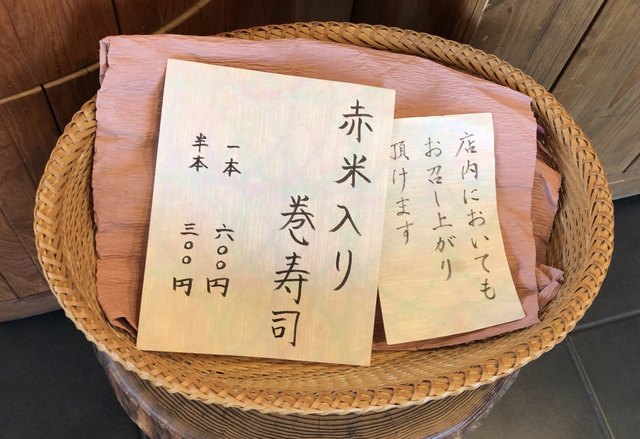 赤米入り
巻寿司
一本 六〇〇円
半本 三〇〇円
店内においても
お召し上がり
頂けます